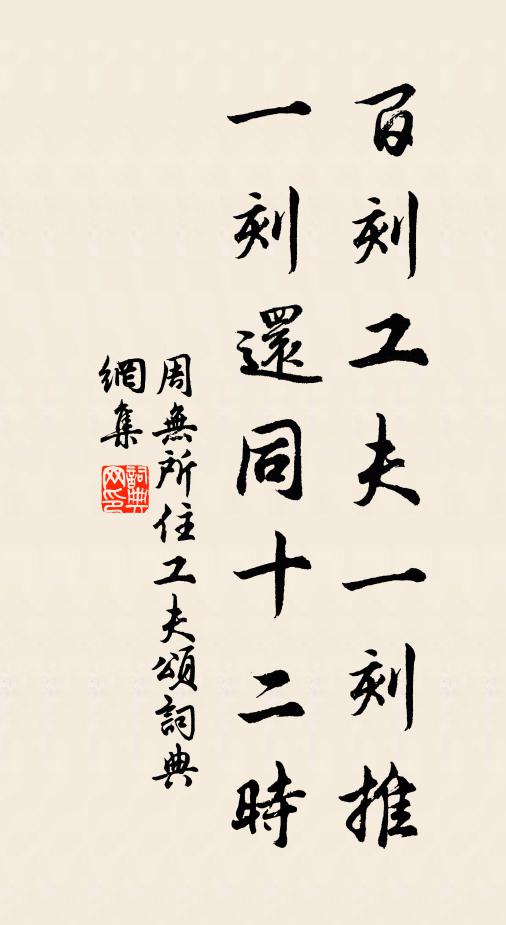 百刻工夫一刻推
一刻還同十二時
周無所住工夫頌詞典
網集
詞典網印